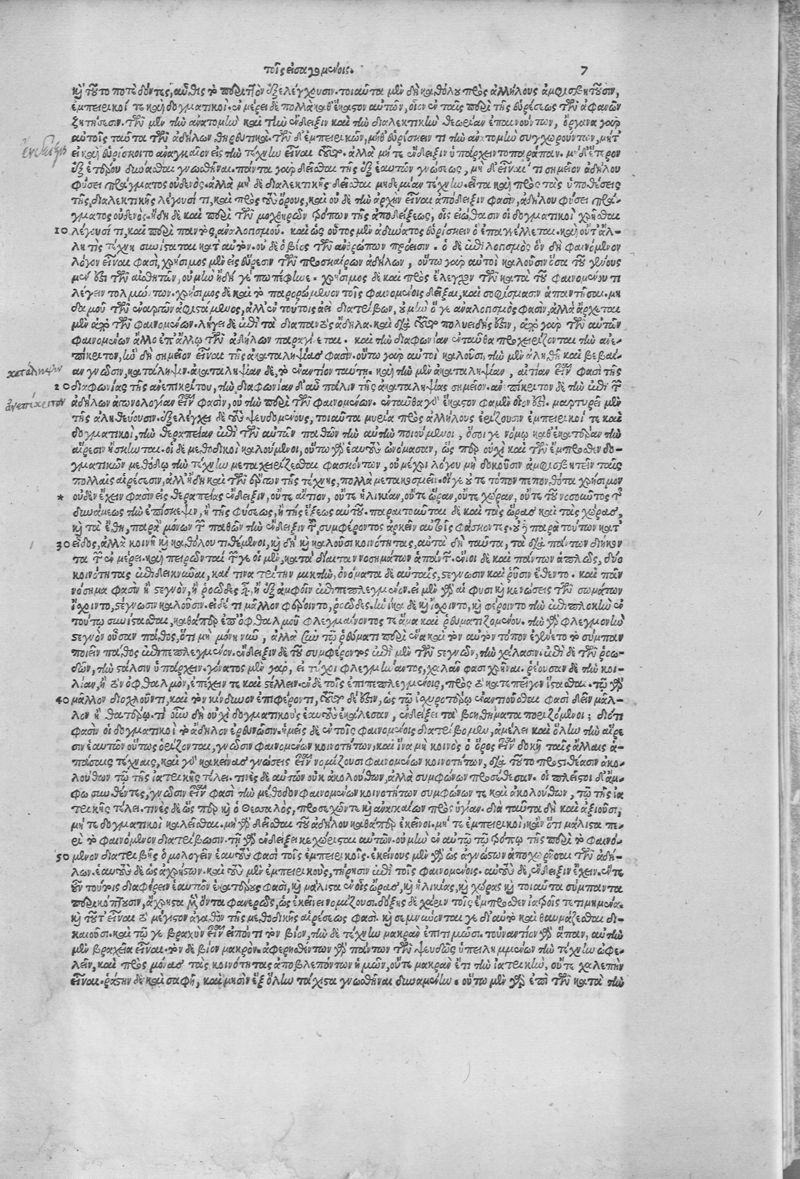 τοῖς εἰσαγομένοις. 7
καὶ τοῦτο ποτὲ δόντες, αὖθις τὸ περιττὸν ἐξελέγχουσιν. τοιαῦτα μὲν δὴ καθόλου πρὸς ἀλλήλους ἀμφισβητοῦσιν,
ἐμπειρικοί τε καὶ δογματικοί. ἐν μέρει δὲ πολλὰ καθ' ἕκαστον αὐτῶν, οἷον ἐν ταῖς περὶ τῆς εὑρέσεως τῶν ἀφανῶν
ζητήσεσιν. τῶν μὲν τὴν ἀνατομὴν καὶ τὴν ἔνδειξιν καὶ τὴν διαλεκτικὴν θεωρίαν ἐπαινούντων, ὄργανα γὰρ
ἔνδειξις
αὐτοῖς ταῦτα τῶν ἀδήλων θηρευτικά. τῶν δ' ἐμπειρικῶν, μήθ' εὑρίσκειν τι τὴν ἀνατομὴν συγχωρούντων, μήτ'
εἰ καὶ εὑρίσκοιτο ἀναγκαῖον εἰς τὴν τέχνην εἶναι τοῦτο. ἀλλὰ μήτε ἔνδειξιν ὑπάρχειν τοπαράπαν. μήδ' ἕτερον
ἐξ ἑτέρου δύνασθαι γνωσθῆναι. πάντα γὰρ δεῖσθαι τῆς ἐξ ἑαυτῶν γνώσεως, μηδ' εἶναί τι σημεῖον ἀδήλου
φύσει πράγματος οὐδενός. ἀλλὰ μηδὲ διαλεκτικῆς δεῖσθαι μηδεμίαν τέχνην. εἶτα καὶ πρὸς τὰς ὑποθέσεις
τῆς διαλεκτικῆς λέγουσί τι, καὶ πρὸς τοὺς ὅρους, καὶ οὐδὲ τὴν ἀρχὴν εἶναι ἀπόδειξιν φασὶν, ἀδήλου φύσει πρά-
γματος οὐδενός. ἤδη δὲ καὶ περὶ τῶν μοχθηρῶν τρόπων τῆς ἀποδείξεως, οἷς εἰώθασιν οἱ δογματικοὶ χρῆσθαι
10 λέγουσί τι, καὶ περὶ παντὸς ἀναλογισμοῦ. καὶ ὡς οὗτος μὲν ἀδύνατος εὑρίσκειν ὃ ἐπαγγέλλεται. καὶ οὔτ' ἄλ-
λη τις τέχνη συνίσταται κατ' αὐτόν. οὐδὲ ὁ βίος τῶν ἀνθρώπων πρόεισιν. ὁ δὲ ἐπιλογισμὸς ὃν δὴ φαινόμενον
λόγον εἶναί φασι, χρήσιμος μὲν εἰς εὕρεσιν τῶν προσκαίρων ἀδήλων, οὕτω γὰρ αὐτοὶ καλοῦσιν ὅσα τοῦ γένους
μέν ἐστι τῶν αἰσθητῶν, οὐ μὴν ἤδη γέ πω πέφηνε. χρήσιμος δὲ καὶ πρὸς ἔλεγχον τῶν κατὰ τῶν φαινομένων τι
λέγειν τολμώντων. χρήσιμος δὲ καὶ τὸ παρορώμενον τοῖς φαινομένοις δεῖξαι, καὶ σοφίσμασιν ἀπαντῆσαι. μη-
δαμοῦ τῶν ἐναργῶν ἀφιστάμενος, ἀλλ' ἐν τούτοις ἀεὶ διατρίβων, οὐ μὴν ὅ γε ἀναλογισμὸς φασὶν, ἀλλὰ ἄρχεται
μὲν ἀπὸ τῶν φαινομένων. λήγει δὲ ἐπὶ τὰ διαπαντὸς ἄδηλα. καὶ διὰ τοῦτο πολυειδής ἐστιν, ἀπὸ γὰρ τῶν αὐτῶν
φαινομένων ἄλλο ἐπ' ἄλλῳ τῶν ἀδήλων παραγίνεται. καὶ τὴν διαφωνίαν ἐνταῦθα προχειρίζονται τὴν ἀνε-
πίκριτον, ἣν δὴ σημεῖον εἶναι τῆς ἀκαταληψίας φασίν. οὕτω γὰρ αὐτοὶ καλοῦσι, τὴν μὲν ἀληθῆ καὶ βεβαί-
κατάληψιν
αν γνῶσιν, κατάληψιν. ἀκαταληψίαν δὲ, τὸ ἐναντίον ταύτῃ. καὶ τὴν μὲν ἀκαταληψίαν, αἰτίαν εἶναι φασὶ τῆς
20 διαφωνίας τῆς ἀνεπικρίτου, τὴν διαφωνίαν δ' αὖ πάλιν τῆς ἀκαταληψίας σημεῖον. ἀνεπίκριτον δὲ τὴν ἐπὶ τῶν
ἀνεπίκριτον
ἀδήλων ἀπολογίαν εἶναι φασὶν, οὐ τὴν περὶ τῶν φαινομένων. ἐνταῦθα γὰρ ἕκαστον φαμὲν οἷόν ἐστι. μαρτυρεῖ μὲν
τῆς ἀληθεύουσιν. ἐξελέγχει δὲ τοὺς ψευδομένους, τοιαῦτα μυρία πρὸς ἀλλήλους ἐρίζουσιν ἐμπειρικοί τε καὶ
δογματικοὶ, τὴν θεραπείαν ἐπὶ τῶν αὐτῶν παθῶν τὴν αὐτὴν ποιούμενοι, ὅσοι γε νόμῳ καθ' ἑκατέραν τὴν
αἵρεσιν ἤσκηνται. οἱ δὲ μεθοδικοὶ καλούμενοι, οὕτω γὰρ ἑαυτοὺς ὠνόμασαν, ὥσπερ οὐχὶ καὶ τῶν ἔμπροσθεν δο-
γματικῶν μεθόδῳ τὴν τέχνην μεταχειρίζεσθαι φασκόντων, οὐ μέχρι λόγου μοι δοκοῦσιν ἀμφισβητεῖν ταῖς
παλαιαῖς αἱρέσεσιν, ἀλλ' ἤδη καὶ τῶν ἔργων τῆς τέχνης, πολλὰ μετακοσμεῖν. οἵ γε οὔτε τόπον πεπονθότα χρήσιμον
* οὐδὲν ἔχειν φασὶν εἰς θεραπείας ἔνδειξιν, οὔτε αἴτιον, οὔτε ἡλικίαν, οὔτε ὥραν, οὔτε χώραν, οὔτε τοῦ νοσοῦντος τῆς
δυνάμεως τὴν ἐπίσκεψιν, ἢ τῆς φύσεως, ἢ τῆς ἕξεως αὐτοῦ. παραιτοῦνται δὲ καὶ τὰς ὥρας καὶ τὰς χώρας,
καὶ τὰ ἔθη, παρὰ μόνων τῶν παθῶν τὴν ἔνδειξιν τοῦ συμφέροντος ἀρκεῖν αὐτοῖς φάσκοντες. οὐδὲ παρὰ τούτων κατ'
30 εἶδος, ἀλλὰ κοινῇ καὶ καθόλου τιθεμένοι, καὶ δὴ καὶ καλοῦσι κοινότητας, αὐτὰ δὴ ταῦτα, τὰ διὰ πάντων διήκον-
τα τῶν ἐν μέρει. καὶ πειρῶνταί γε οἱ μὲν, κατὰ δίαιταν νοσημάτων ἁπάντων. ἔνιοι δὲ καὶ πάντων ἁπλῶς, δύο
κοινότητας ἐπιδεικνύναι, καί τινα τρίτην μικτὴν, ὀνόματα δὲ αὐταῖς, στέγνωσιν καὶ ῥύσιν ἔθεντο. καὶ πᾶν
νόσημα φασὶν ἢ στεγνὸν, ἢ ῥοῶδες εἶναι, ἢ ἐξ ἀμφοῖν ἐπιπεπλεγμένον. εἰ μὲν γὰρ αἱ φυσικαὶ κενώσεις τῶν σωμάτων
ἴσχοιντο, στέγνωσιν καλοῦσιν. εἰ δέ τι μᾶλλον φέροιντο, ῥοῶδες. ἡνίκα δὲ καὶ ἴσχοιντο, καὶ φέροιντο τὴν ἐπιπλοκὴν ἐν
τούτῳ συνίστασθαι, καθάπερ ἐπ' ὀφθαλμοῦ φλεγμαίνοντός τε ἅμα καὶ ῥευματιζομένου. τὴν γὰρ φλεγμονὴν
στεγνὸν οὖσαν πάθος, ὅτι μὴ μόνη νῦν, ἀλλὰ σὺν τῷ ῥεύματι περὶ ἕνα καὶ τὸν αὐτὸν τόπον ἐγένετο τὸ σύμπαν
ποιεῖν πάθος ἐπιπεπλεγμένον. ἔνδειξιν δὲ τοῦ συμφέροντος ἐπὶ μὲν τῶν στεγνῶν, τὴν χάλασιν. ἐπὶ δὲ τῶν ῥοω-
δῶν, τὴν στάλσιν ὑπάρχειν. γόνατος μὲν γὰρ, εἰ τύχοι φλεγμήναντος, χαλᾶν φασι χρῆναι. ῥέουσαν δὲ τὴν κοι-
λίαν, ἢ τὸν ὀφθαλμὸν, ἐπέχειν τε καὶ στέλλειν. ἐν δὲ τοῖς ἐπιπεπλεγμένοις, πρὸς τὸ κατεπεῖγον ἵστασθαι. τῷ γὰρ
40 μᾶλλον διοχλοῦντι, καὶ τὸν κίνδυνον ἐπιφέροντι, τοῦτο δέ ἐστιν, ὡς τῷ ἰσχυροτέρῳ ἐναντιοῦσθαι φασὶ δεῖν μᾶλ-
λον ἢ θατέρῳ. τί οὖν δὴ οὐχὶ δογματικοὺς ἑαυτοὺς ἐκάλεσαν, ἐνδείξει τὰ βοηθήματα ποριζόμενοι; διότι
φασὶν οἱ δογματικοὶ τὸ ἄδηλον ἐρευνῶσιν. ἡμεῖς δὲ ἐν τοῖς φαινομένοις διατρίβομεν, ἀμέλει καὶ ὅλην τὴν αἵρε-
σιν ἑαυτῶν οὕτως ὁρίζονται, γνῶσιν φαινομένων κοινοτήτων, καὶ ἵνα μὴ κοινὸς ὁ ὅρος εἶναι δοκῇ ταῖς ἄλλαις ἁ-
πάσαις τέχναις, καὶ γὰρ κἀκείνας γνώσεις εἶναι νομίζουσι φαινομένων κοινοτήτων, διὰ τοῦτο προστιθέασιν ἀκο-
λούθων τῷ τῆς ἰατρικῆς τέλει. τινὲς δὲ αὐτῶν οὐκ ἀκολούθων, ἀλλὰ συμφώνων προσέθεσαν. οἱ πλεῖστοι δ' ἄμ-
φω συνθέντες, γνῶσιν εἶναι φασὶ τὴν μέθοδον φαινομένων κοινοτήτων συμφώνων τε καὶ ἀκολούθων, τῷ τῆς ἰα-
τρικῆς τέλει. τινὲς δὲ ὥσπερ καὶ ὁ Θεσσαλὸς, προσεχῶν τε καὶ ἀναγκαίων πρὸς ὑγίαν. διὰ ταῦτα δὴ καὶ ἀξιοῦσι,
μήτε δογματικοὶ καλεῖσθαι. μὴ γὰρ δεῖσθαι τοῦ ἀδήλου καθάπερ ἐκεῖνοι. μήτε ἐμπειρικοὶ, κἂν ὅτι μάλιστα πε-
ρὶ τὸ φαινόμενον διατρίβωσιν. τῇ γὰρ ἐνδείξει κεχωρίσθαι αὐτῶν. οὐ μὴν ἐν αὐτῷ τῷ τρόπῳ τῆς περὶ τὸ φαινό-
50 μενον διατριβῆς ὁμολογεῖν ἑαυτοὺς φασὶ τοῖς ἐμπειρικοῖς. ἐκείνους μὲν γὰρ ὡς ἀγνώστων ἀποχωρῆσαι τῶν ἀδή-
λων. ἑαυτοὺς δὲ ὡς ἀχρήστων. καὶ τοὺς μὲν ἐμπειρικοὺς, τήρησιν ἐπὶ τοῖς φαινομένοις. αὑτοὺς δὲ, ἔνδειξιν ἔχειν. ἔν τε
οὖν τούτοις διαφέρειν ἑαυτῶν ἑκατέρους φασὶ, καὶ μάλιστα ἐν οἷς ὥρας, καὶ ἡλικίας, καὶ χώρας καὶ τοιαῦτα σύμπαντα
περικόπτουσιν, ἄχρηστα μὲν ὄντα φανερῶς, ὡς ἐκεῖνοι νομίζουσι. δόξης δὲ χάριν τοῖς ἔμπροσθεν ἰατροῖς τετιμημένα.
καὶ τοῦτ' εἶναι τὸ μέγιστον ἀγαθὸν τῆς μεθοδικῆς αἱρέσεώς φασι. καὶ σεμνύνονταί γε δι' αὐτὸ καὶ θαυμάζεσθαι δι-
καιοῦσι. καὶ τῷ γε βραχὺν εἶναι εἰπόντι τὸν βίον, τὴν δὲ τέχνην μακρὰν ἐπιτιμῶσι. τοὐναντίον γὰρ ἅπαν, αὐτὴν
μὲν βραχεῖαν εἶναι. τὸν δὲ βίον μακρόν. ἀφαιρεθέντων γὰρ πάντων τῶν ψευδῶς ὑπειλημμένων τὴν τέχνην ὠφε-
λεῖν, καὶ πρὸς μόνας τὰς κοινότητας ἀποβλεπόντων ἡμῶν, οὔτε μακρὰν ἔτι τὴν ἰατρικὴν, οὔτε χαλεπὴν
εἶναι. ῥᾴστην δὲ καὶ σαφῆ, καὶ μησὶν ἓξ ὅλην τάχιστα γνωσθῆναι δυναμένην. οὕτω μὲν γὰρ ἐπὶ τῶν κατὰ τὴν